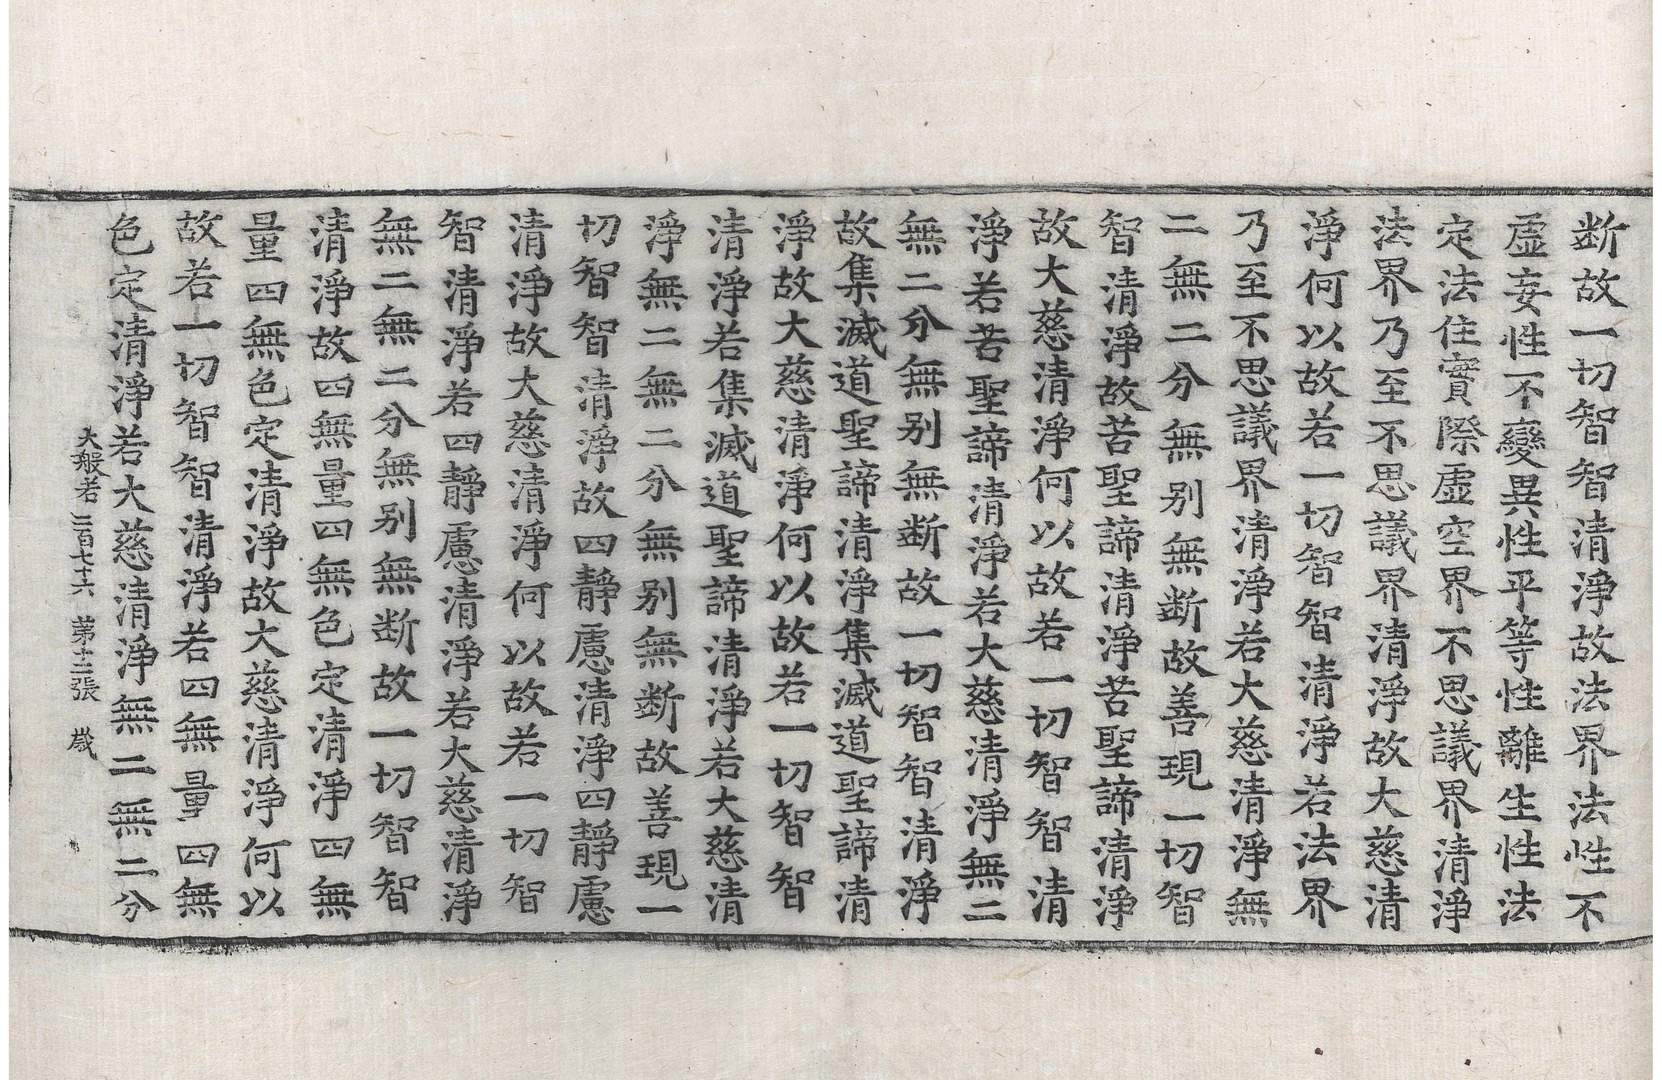 断故一切智智清淨故法界法性不
虛妄性不變異性平等性離生性法
定法住實際虛空界不思議界清淨
法界乃至不思議界清淨故大慈清
淨何以故若一切智智清淨若法界
乃至不思議界清淨若大慈清淨無
二無二分無别無断故善現一切智
智清淨故苦聖諦清淨苦聖諦清淨
故大慈清淨何以故若一切智智清
淨若苦聖諦清淨若大慈清淨無二
無二分無别無断故一切智智清淨
故集滅道聖諦清淨集滅道聖諦清
淨故大慈清淨何以故若一切智智
清淨若集滅道聖諦清淨若大慈清
淨無二無二分無别無断故善現一
切智智清淨故四靜慮清淨四靜慮
清淨故大慈清淨何以故若一切智
智清淨若四靜慮清淨若大慈清淨
無二無二分無别無断故一切智智
清淨故四無量四無色定清淨四無
量四無色定清淨故大慈清淨何以
故若一切智智清淨若四無量四無
色定清淨若大慈清淨無二無二分
大般若 二百七十六 第十二張 歲